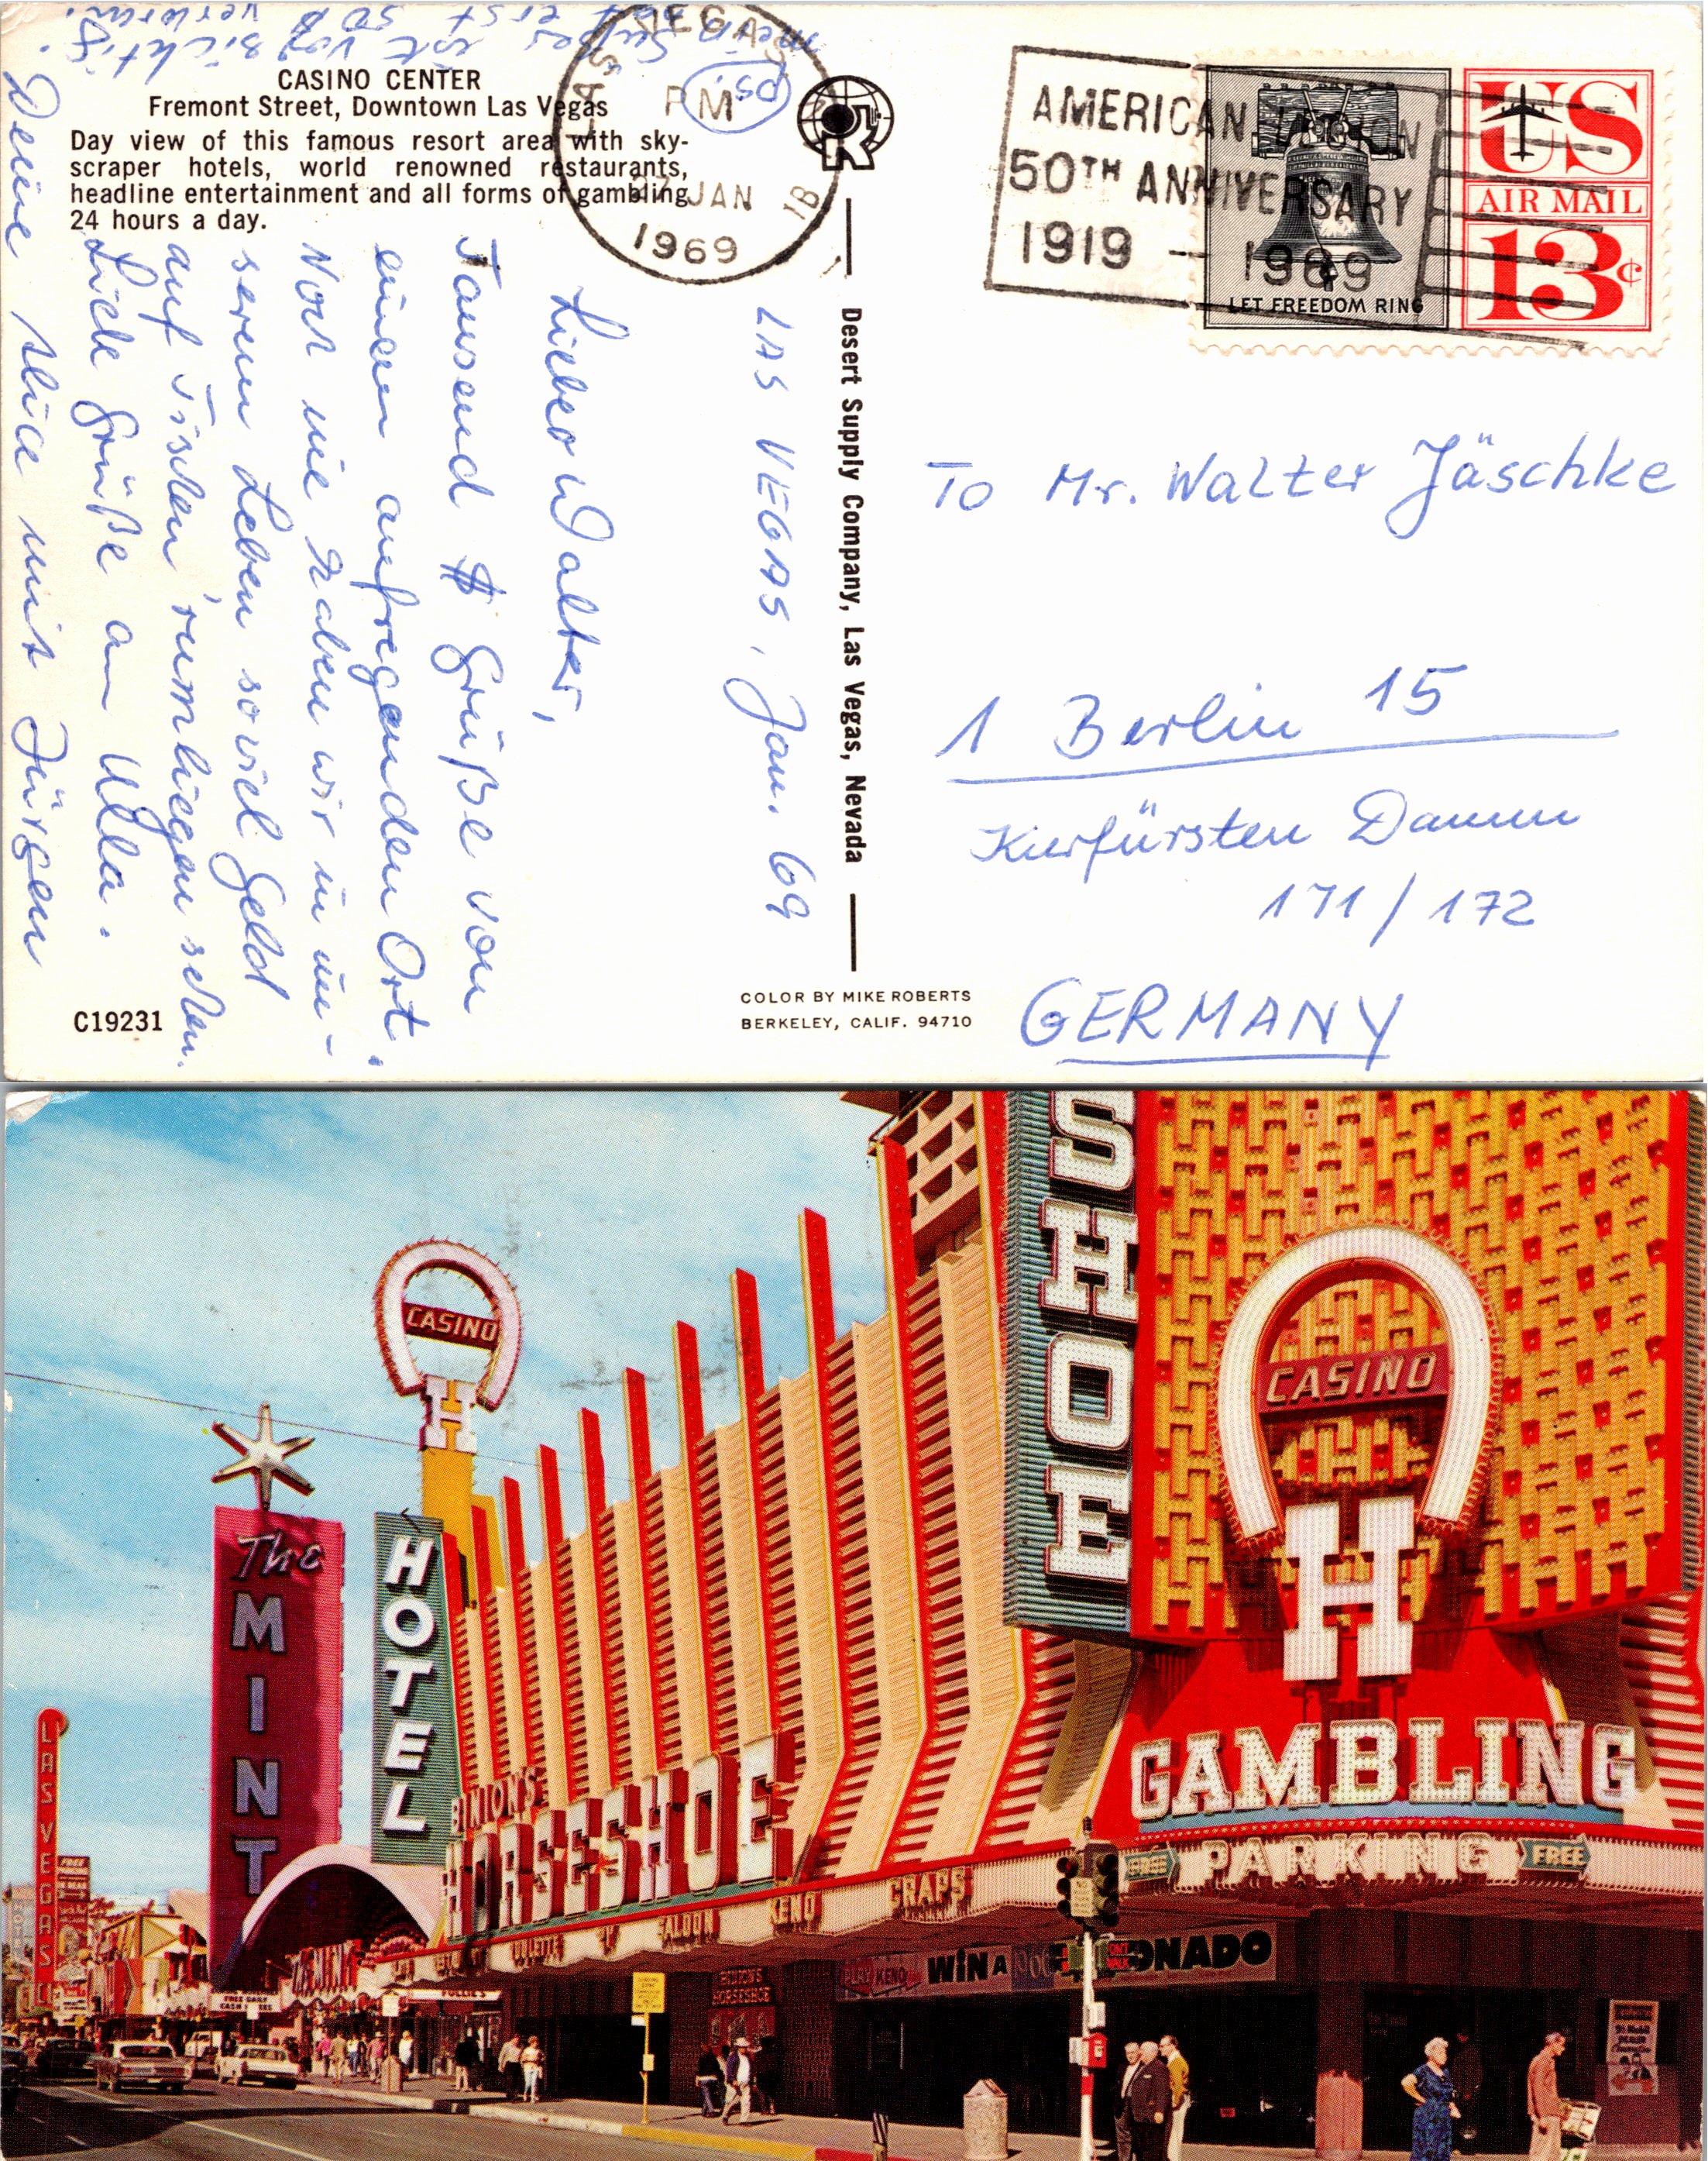 CASINO CENTER
Fremont Street, Downtown Las Vegas
Day view of this famous resort area with sky-
scraper hotels, world renowned restaurants,
headline entertainment and all forms of gambling
24 hours a day.
LAS VEGAS
PM
JAN
1969
AMERICAN LEGION
50TH ANNIVERSARY
1919 - 1969
LET FREEDOM RING
US
AIR MAIL
13c
LAS VEGAS, Jan. 69
Lieber Walter,
Tausend $ Grüße von
einem aufregenden Ort.
Noch nie haben wir in un-
serem Leben soviel Geld
auf Tischen rumliegen sehen.
Liebe Grüße an Ulla.
Deine mit Jürgen
PS.
mein Süßer ist vorsichtig,
hat erst 50 $ verloren.
Desert Supply Company, Las Vegas, Nevada
To Mr. Walter Jäschke
1 Berlin 15
Kurfürsten Damm
171/172
GERMANY
C19231
COLOR BY MIKE ROBERTS
BERKELEY, CALIF. 94710
SHOE
CASINO
H
CASINO
H
The
MINT
HOTEL
LAS VEGAS
BINION'S
HORSESHOE
GAMBLING
FREE PARKING FREE
SALOON KENO CRAPS
PLAY KENO WIN A
BINION'S
HORSESHOE